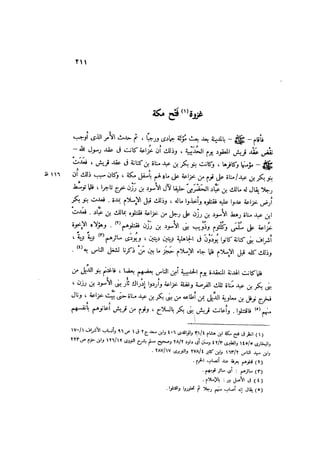 ٢١١
غزوة(١) فتح مكة
فأقام – ﷺ – بالمدينة بعد بعث مؤتة جمادى ورجباً ، ثم حدث الأمر الذى أوجب
نقض عقد قريش المعقود يوم الحديبية ، وذلك أن خزاعة كانت فى عقد رسول الله –
ﷺ – مؤمنها وكافرها ، وكانت بنو بكر بن عبد مناة بن كنانة فى عقد قريش ، فعدت
بنو بكر بن عبد/مناة على قوم من خزاعة على ماء لهم بأسفل مكة ، وكان سبب ذلك أن ١١٦ ظ
رجلا يقال له مالك بن عباد الحضرمى حليفا لآل الأسود بن رزن خرج تاجرا ، فلما توسط
أرض خزاعة عدوا عليه فقتلوه وأخذوا ماله ، وذلك قبل الإسلام بمدة . فعدت بنو بكر
ابن عبد مناة رهط الأسود بن رزن على رجل من خزاعة فقتلوه بمالك بن عباد . فعدت
خزاعة على سلمى وكلثوم وذؤيب بنى الأسود بن رزن فقتلوهم(٢) . وهؤلاء الإخوة
أشراف بنى كنانة كانوا يودون فى الجاهلية ديتين ديتين ، ويودى سائرهم(٣) دية دية ،
وذلك كله قبل الإسلام فلما جاء الإسلام حجز ما بين من ذكرنا لشغل الناس به(٤) .
فلما كانت الهدنة المنعقدة يوم الحديبية أمن الناس بعضهم بعضا ، فاغتنم بنو الديل من
بنى بكر بن عبد مناة تلك الفرصة وغفلة خزاعة وأرادوا إدراك ثأر بنى الأسود بن رزن ،
فخرج نوفل بن معاوية الديلى بمن أطاعه من بنى بكر بن عبد مناة حتى بيت خزاعة ، ونال
منهم(٥) فاقتتلوا . وأعانت قريش بنى بكر بالسلاح ، وقوم من قريش أعانوهم بأنفسهم
(١) انظر فى فتح مكة ابن هشام ٣١/٤ والواقدى ٤١٦ وابن سعد ج ٢ ق ١ ص ٩٦ وأنساب الأشراف ١٧٠/١
والبخارى ١٤٥/٥ والطبرى ٤٢/٣ وسنن أبى داود ٢٨/٢ وصحيح مسلم بشرح النووى ١٢٦/١٢ وابن حزم ص ٢٢٣
وابن سيد الناس ١٦٣/٢ وابن كثير ٢٧٨/٤ والنويرى ٢٨٧/١٧ .
(٢) قتلوهم بعرفة عند أنصاب الحرم .
(٣) سائرهم : أى سائر قومهم .
(٤) فى الأصل و ر : بالإسلام .
(٥) يقال إنه أصاب منهم رجلا ثم تحاوزوا واقتتلوا .